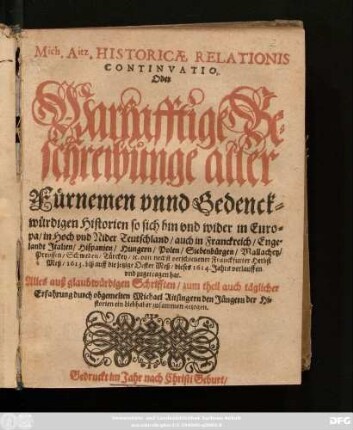 Mich. Aitz. HISTORICÆ RELATIONIS
CONTINVATIO.
Oder
Warhafftige Be-
schreibunge aller
Fürnemen vnnd Gedenck-
würdigen Historien so sich hin vnd wider in Euro-
pa/ in Hoch vnd Nider Teutschland/ auch in Franckreich/ Enge-
landt Italien/ Hispanien/ Hungern/ Polen/ Siebenbürgen/ Wallachey/
Preussen/ Schweden/ Türckey/ ꝛc. von nechst verschienener Franckfurter Herbst
Meß/ 1613. biß auff die jetzige Oster Meß/ dieses 1614. Jahrs verlauffen
vnd zugetragen hat.
Alles auß glaubwürdigen Schrifften/ zum theil auch täglicher
Erfahrung durch obgemelten Michael Aitzingern den Jüngern der Hi-
storien ein liebhaber zusammen
Gedruckt im Jahr nach Christi Geburt/